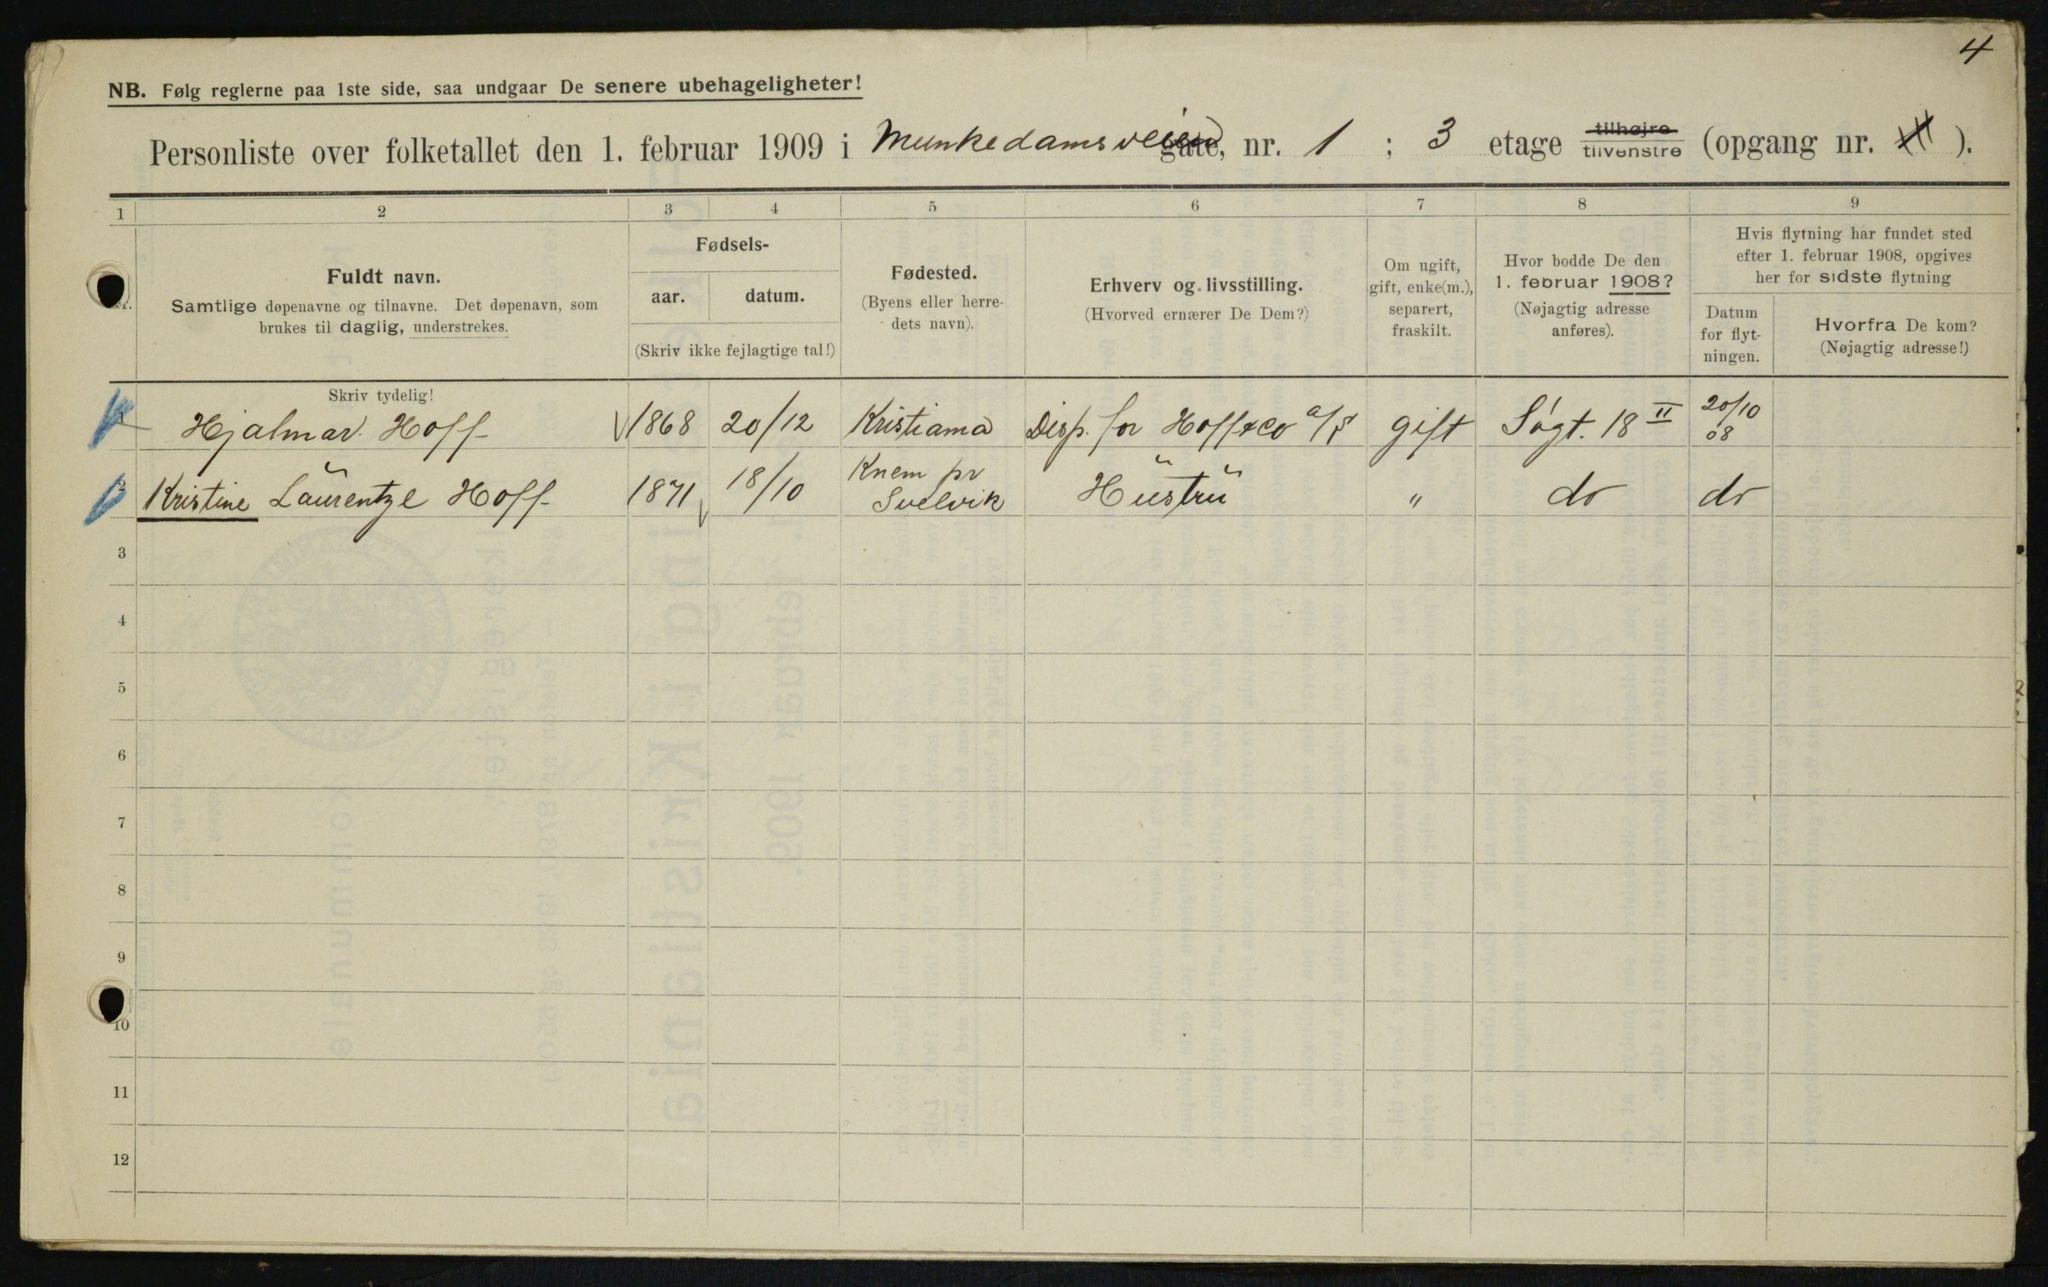 4
NB. Følg reglerne paa 1ste side, saa undgaar De senere ubehageligheter!
Personliste over folketallet den 1. februar 1909 i Munkedamsveien gate, nr. 1 ; 3 etage tilhøjre tilvenstre (opgang nr. ).
1 2 3 4 5 6 7 8 9
Fuldt navn.
Samtlige døpenavne og tilnavne. Det døpenavn, som
brukes til daglig, understrekes.
Fødsels-
aar. datum.
(Skriv ikke fejlagtige tal!)
Fødested.
(Byens eller herre-
dets navn).
Erhverv og livsstilling.
(Hvorved ernærer De Dem?)
Om ugift,
gift, enke(m.),
separert,
fraskilt.
Hvor bodde De den
1. februar 1908?
(Nøjagtig adresse
anføres).
Hvis flytning har fundet sted
efter 1. februar 1908, opgives
her for sidste flytning
Datum
for flyt-
ningen.
Hvorfra De kom?
(Nøjagtig adresse!)
Skriv tydelig!
1 Hjalmar Hoff 1868 20/12 Kristiania Disp. for Hoff & Co a/s gift Søgt. 18 II 20/10 08
2 Kristine Laurentze Hoff 1871 18/10 Knem pr Svelvik Hustru " do do
3
4
5
6
7
8
9
10
11
12